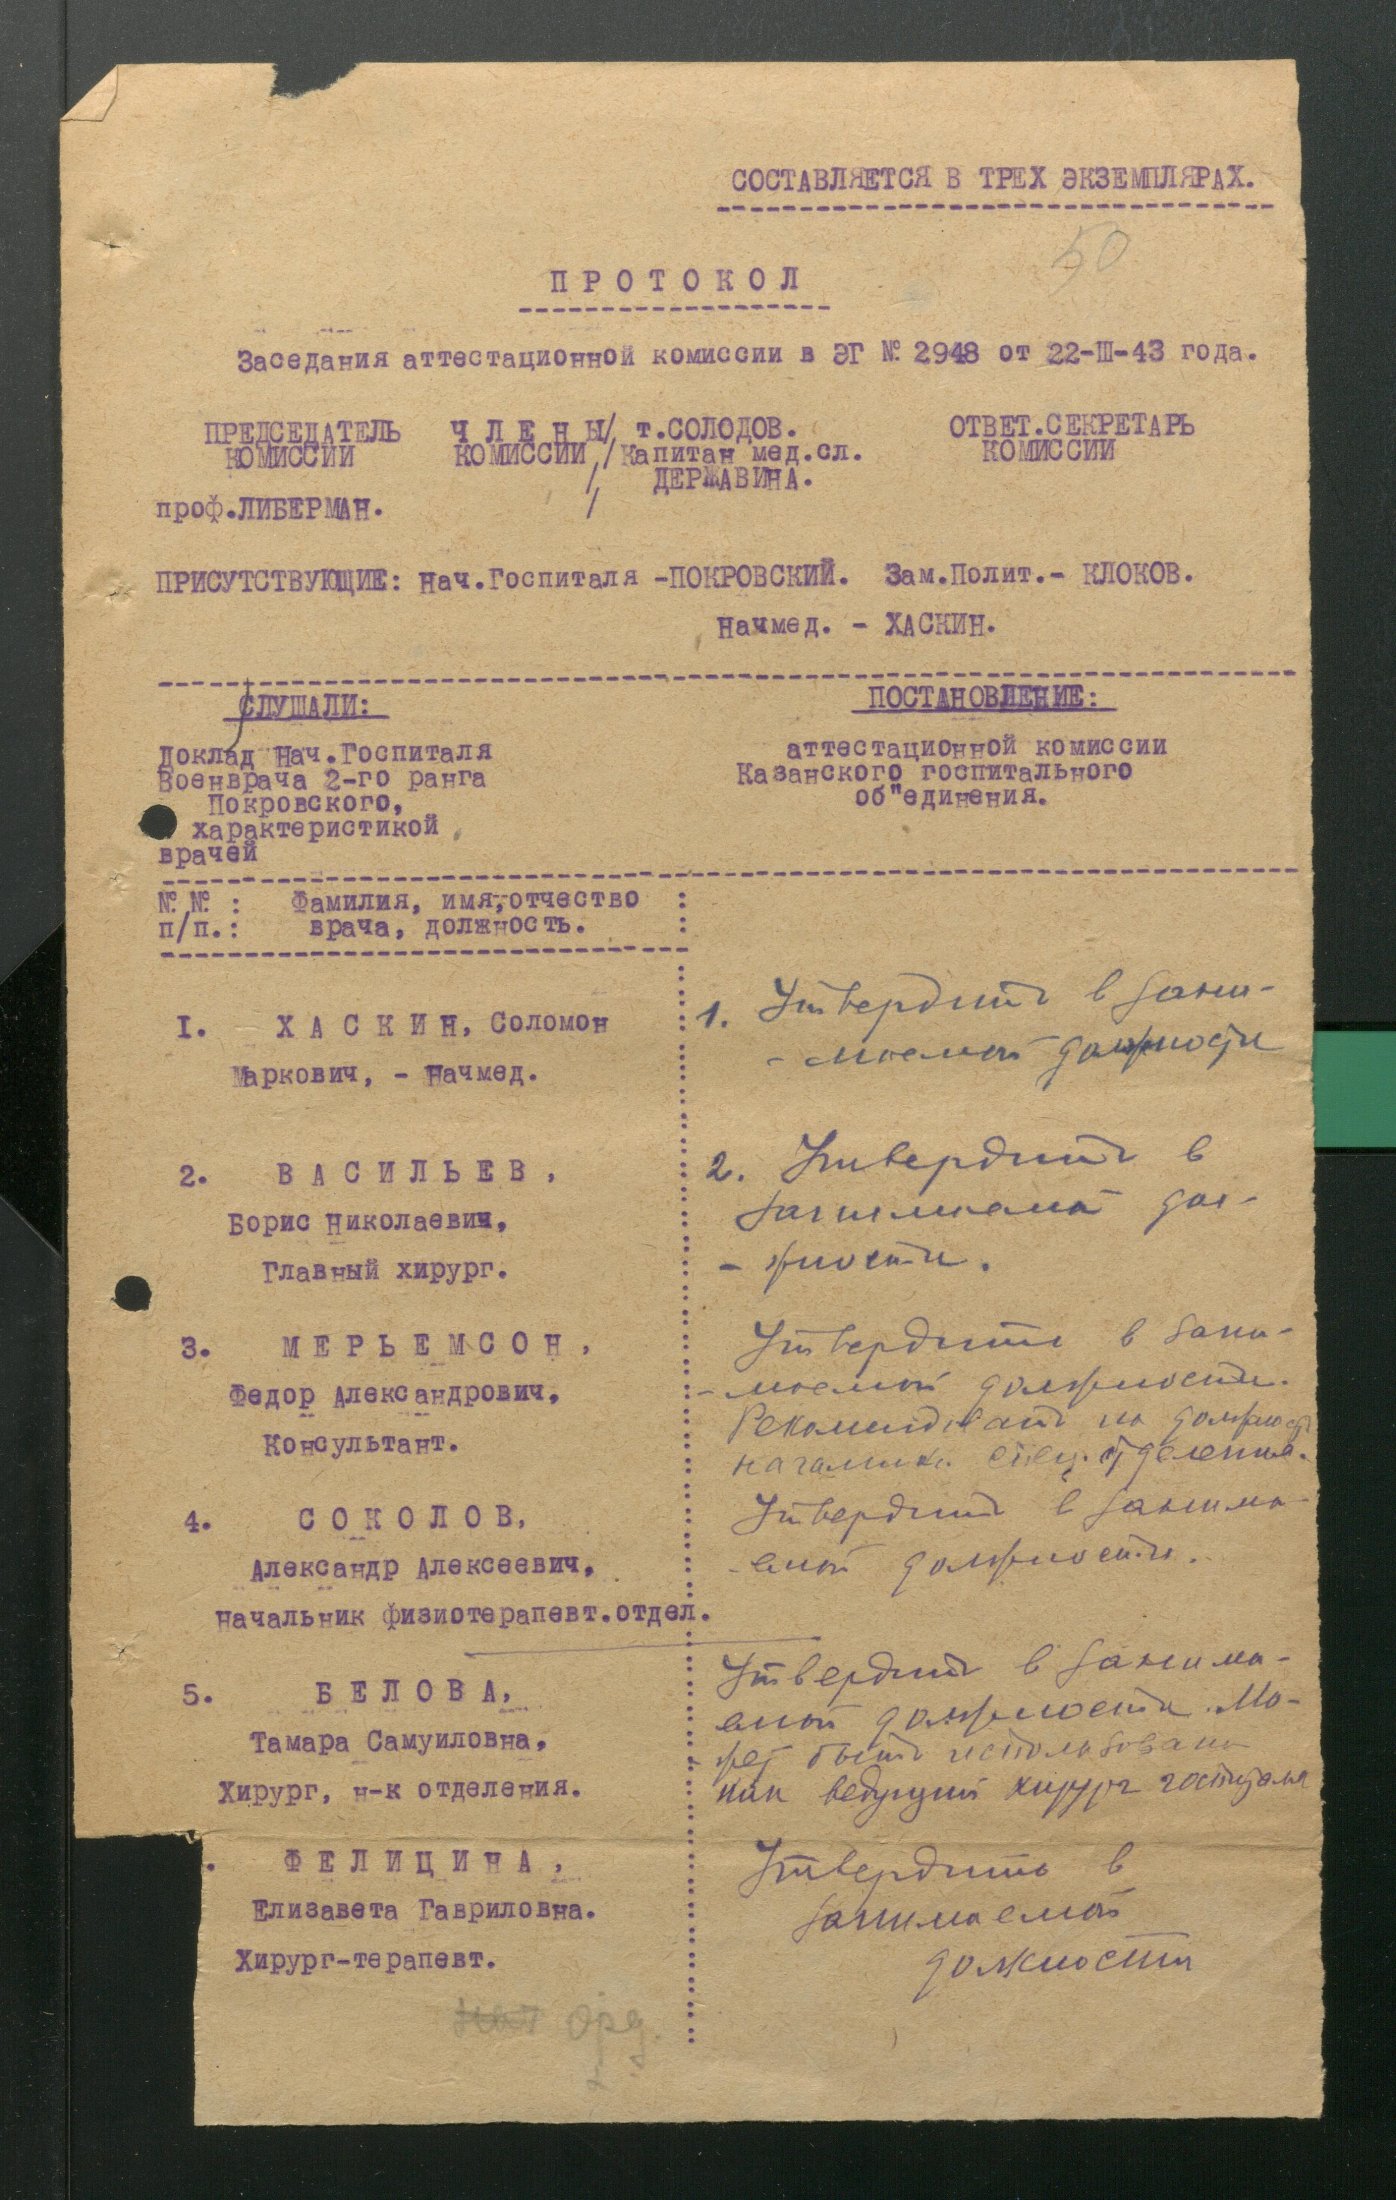 СОСТАВЛЯЕТСЯ В ТРЕХ ЭКЗЕМПЛЯРАХ.
50
ПРОТОКОЛ
Заседания аттестационной комиссии в ЭГ № 2948 от 22-III-43 года.
ПРЕДСЕДАТЕЛЬ КОМИССИИ
проф.ЛИБЕРМАН.
ЧЛЕНЫ/ т.СОЛОДОВ.
КОМИССИИ / Капитан мед.сл.
/ ДЕРЖАВИНА.
/
ОТВЕТ.СЕКРЕТАРЬ
КОМИССИИ
ПРИСУТСТВУЮЩИЕ: Нач.Госпиталя -ПОКРОВСКИЙ. Зам.Полит.- КЛОКОВ.
Начмед. - ХАСКИН.
СЛУШАЛИ:
Доклад Нач.Госпиталя
Военврача 2-го ранга
Покровского,
характеристикой
врачей
ПОСТАНОВЛЕНИЕ:
аттестационной комиссии
Казанского госпитального
об"единения.
№ № : Фамилия, имя,отчество :
п/п.: врача, должность. :
I. ХАСКИН, Соломон
Маркович, - Начмед.
1. Утвердить в зани-
- маемой должности
2. ВАСИЛЬЕВ,
Борис Николаевич,
Главный хирург.
2. Утвердить в
занимаемой дол-
- жности.
3. МЕРЬЕМСОН,
Федор Александрович,
Консультант.
Утвердить в зани-
- маемой должности.
Рекомендовать на должность
начальника спец. отделения.
4. СОКОЛОВ,
Александр Алексеевич,
Начальник физиотерапевт.отдел.
Утвердить в занима-
-емой должности.
5. БЕЛОВА,
Тамара Самуиловна,
Хирург, н-к отделения.
Утвердить в занима-
емой должности. Мо-
-жет быть использована
как ведущий хирург госпиталя
. ФЕЛИЦИНА,
Елизавета Гавриловна.
Хирург-терапевт.
Утвердить в
занимаемой
должности
орд.